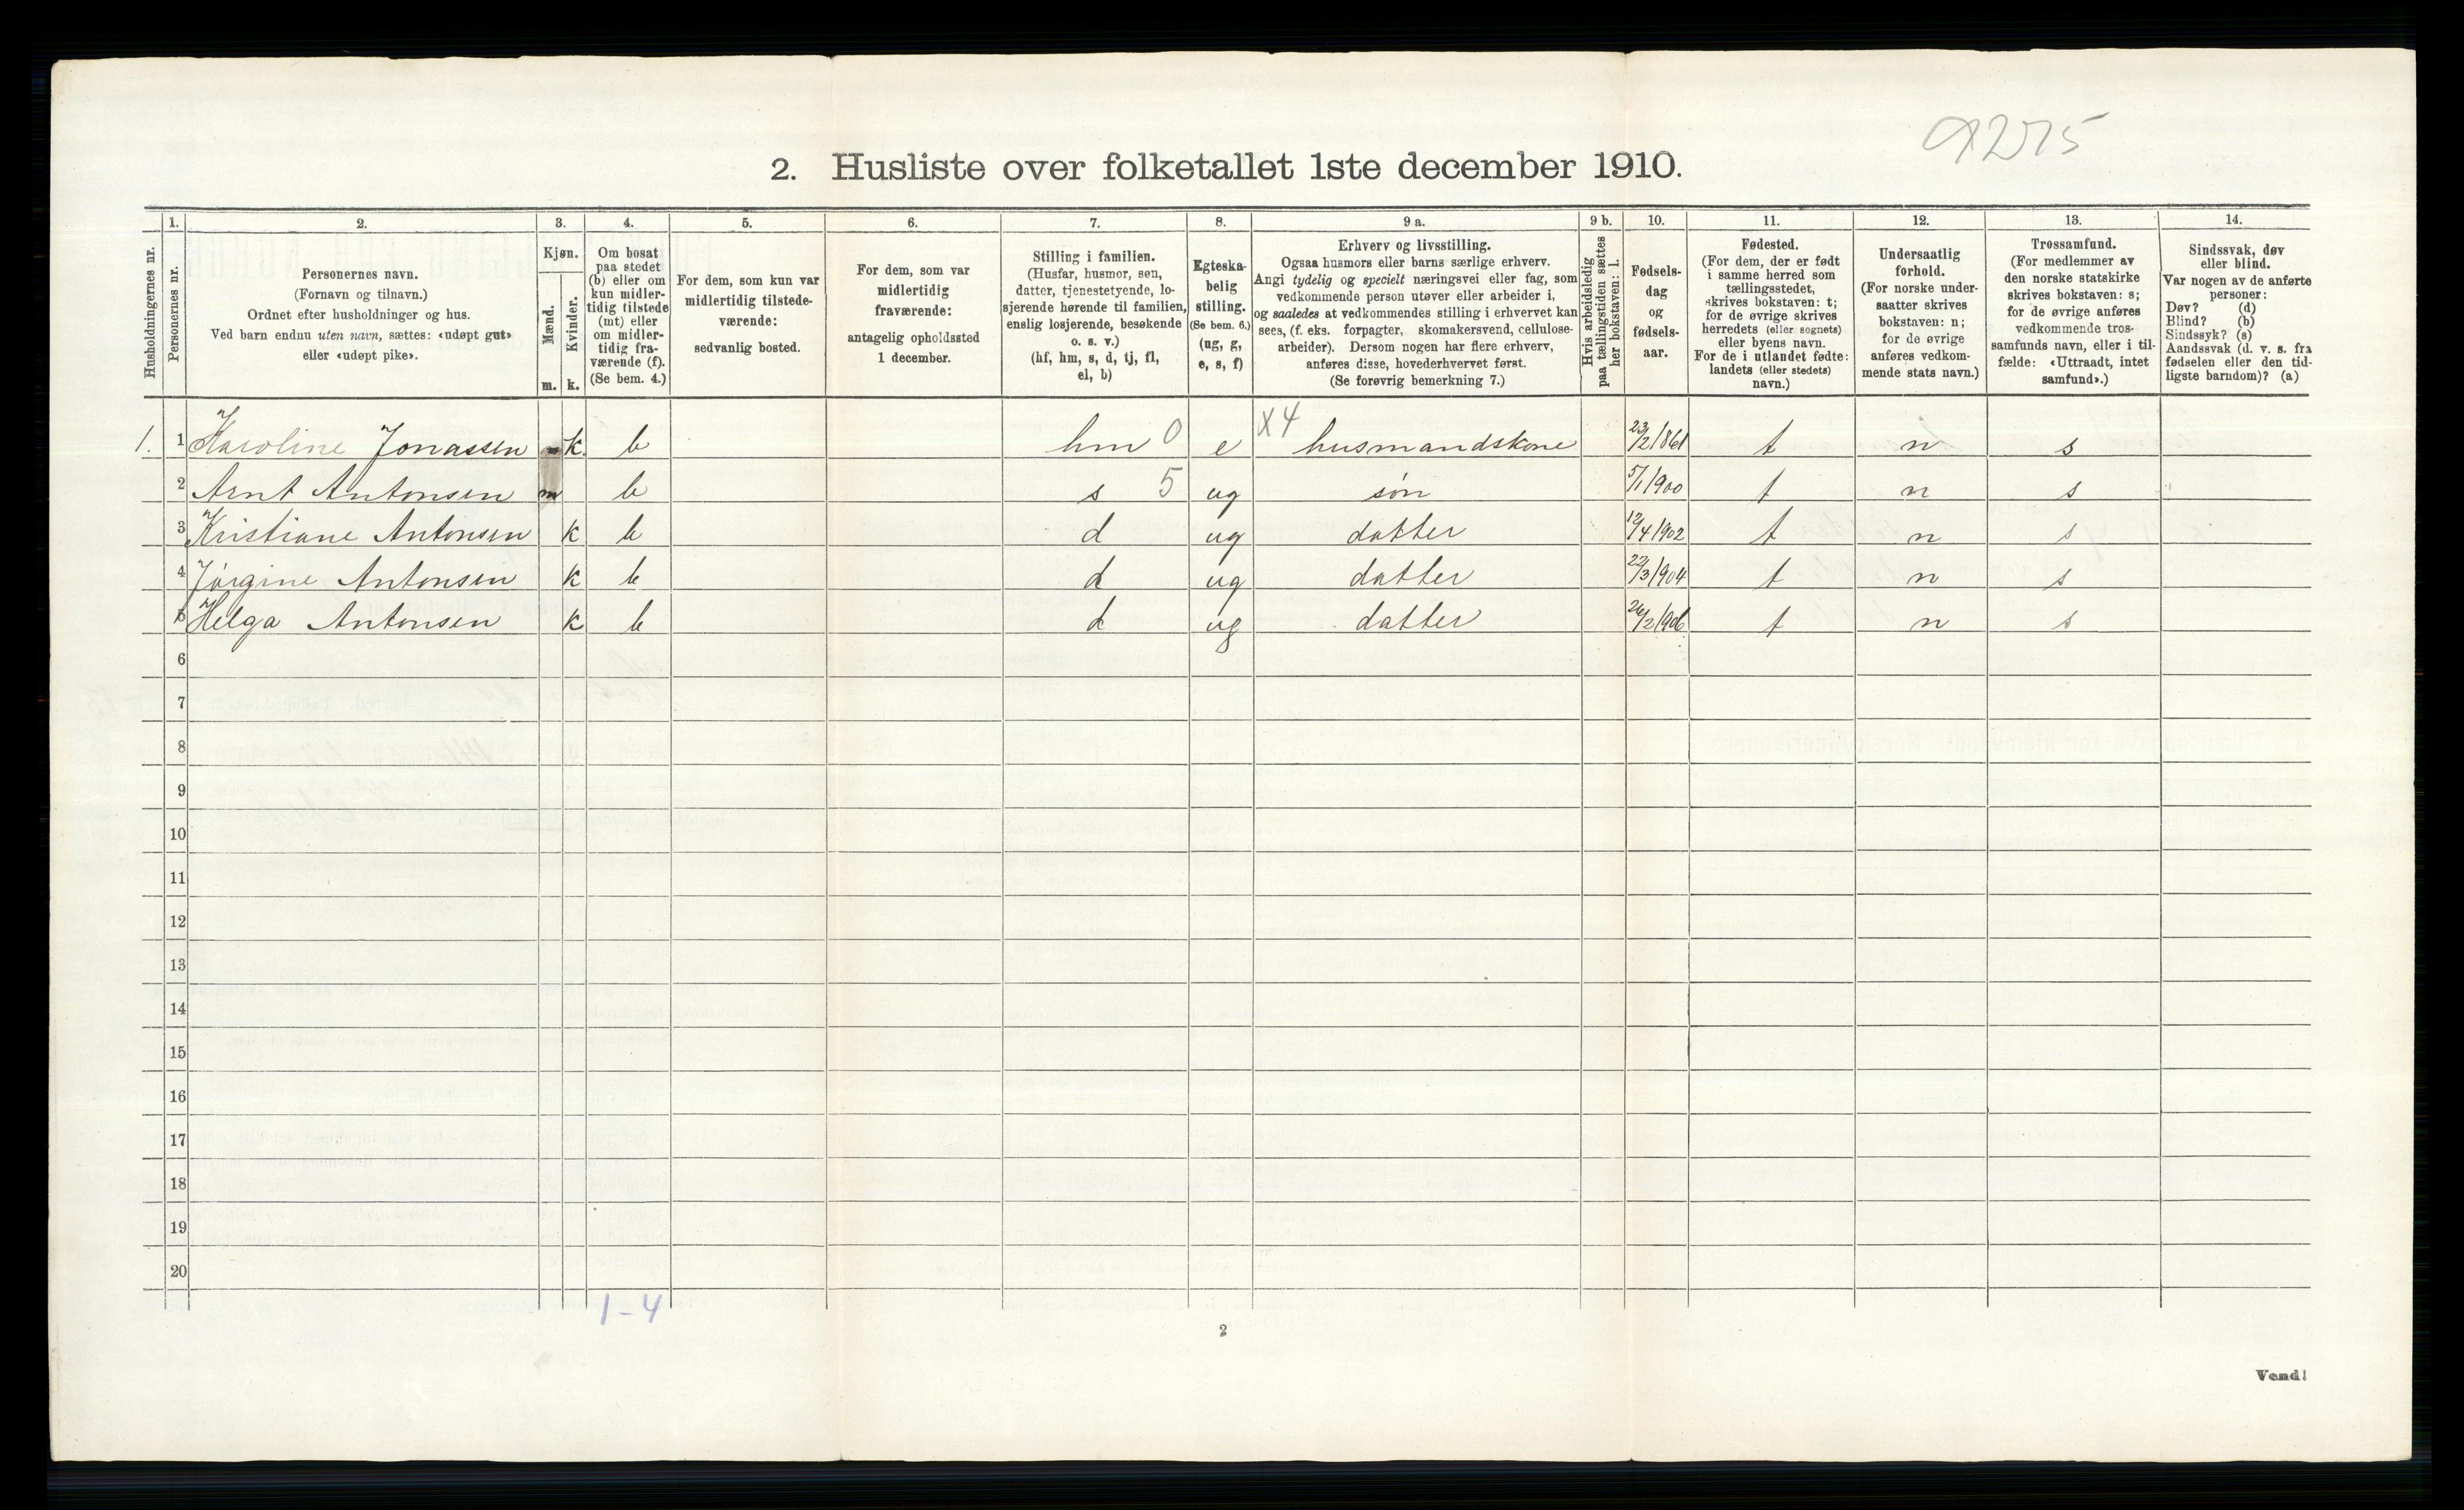 9275
2. Husliste over folketallet 1ste december 1910.
1. 2. 3. 4. 5. 6. 7. 8. 9 a. 9 b. 10. 11. 12. 13. 14.
Husholdningernes nr.
Personernes nr.
Personernes navn.
(Fornavn og tilnavn.)
Ordnet efter husholdninger og hus.
Ved barn endnu uten navn, sættes: «udøpt gut»
eller «udøpt pike».
Kjøn.
Mænd.
Kvinder.
m. k.
Om bosat
paa stedet
(b) eller om
kun midler-
tidig tilstede
(mt) eller
om midler-
tidig fra-
værende (f).
(Se bem. 4.)
For dem, som kun var
midlertidig tilstede-
værende:
sedvanlig bosted.
For dem, som var
midlertidig
fraværende:
antagelig opholdssted
1 december.
Stilling i familien.
(Husfar, husmor, søn,
datter, tjenestetyende, lo-
sjerende hørende til familien,
enslig losjerende, besøkende
o. s. v.)
(hf, hm, s, d, tj, fl,
el, b)
Egteska-
belig
stilling.
(Se bem. 6.)
(ug, g,
e, s, f)
Erhverv og livsstilling.
Ogsaa husmors eller barns særlige erhverv.
Angi tydelig og specielt næringsvei eller fag, som
vedkommende person utøver eller arbeider i,
og saaledes at vedkommendes stilling i erhvervet kan
sees, (f. eks. forpagter, skomakersvend, cellulose-
arbeider). Dersom nogen har flere erhverv,
anføres disse, hovederhvervet først.
(Se forøvrig bemerkning 7.)
Hvis arbeidsledig
paa tællingstiden sættes
her bokstaven: l.
Fødsels-
dag
og
fødsels-
aar.
Fødested.
(For dem, der er født
i samme herred som
tællingsstedet,
skrives bokstaven: t;
for de øvrige skrives
herredets (eller sognets)
eller byens navn.
For de i utlandet fødte:
landets (eller stedets)
navn.)
Undersaatlig
forhold.
(For norske under-
saatter skrives
bokstaven: n;
for de øvrige
anføres vedkom-
mende stats navn.)
Trossamfund.
(For medlemmer av
den norske statskirke
skrives bokstaven: s;
for de øvrige anføres
vedkommende tros-
samfunds navn, eller i til-
fælde: «Uttraadt, intet
samfund».)
Sindssvak, døv
eller blind.
Var nogen av de anførte
personer:
Døv? (d)
Blind? (b)
Sindssyk? (s)
Aandssvak (d. v. s. fra
fødselen eller den tid-
ligste barndom)? (a)
1. 1 Karoline Jonassen k b hm 0 e X4 husmandskone 23/2 1861 t n s
2 Arnt Antonsen m b s 5 ug søn 5/1 1900 t n s
3 Kristiane Antonsen k b d ug datter 12/4 1902 t n s
4 Jørgine Antonsen k b d ug datter 22/3 1904 t n s
5 Helga Antonsen k b d ug datter 26/2 1906 t n s
6
7
8
9
10
11
12
13
14
15
16
17
18
19
20
1-4
2
Vend!